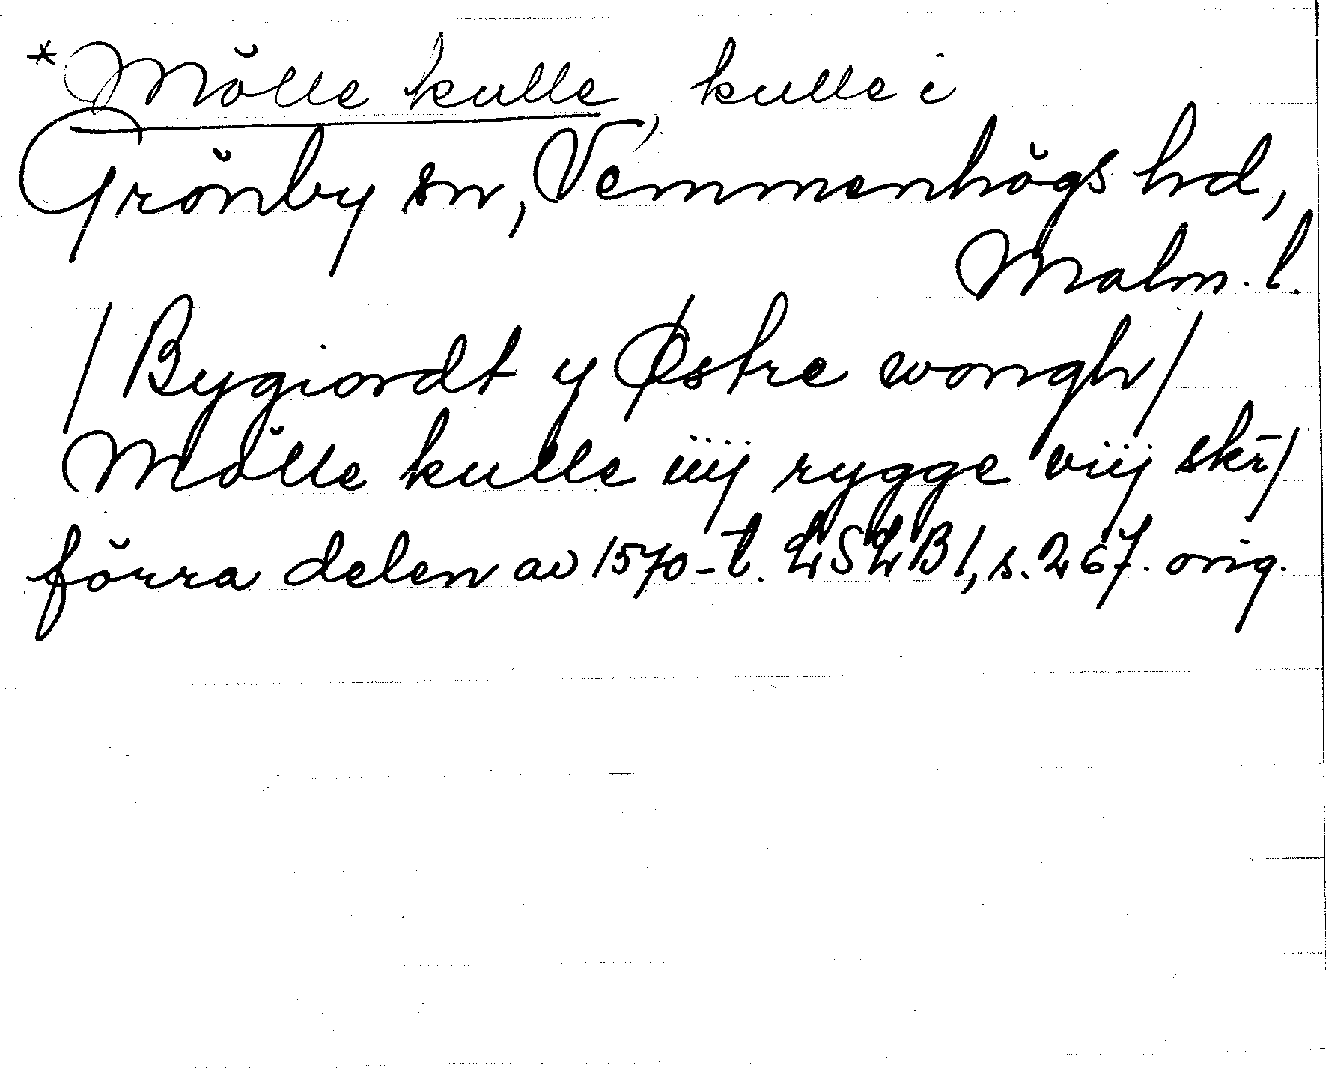 * Mölle kulle, kulle i
Grönby sn, Vemmenhögs hd,
Malm. l.
/ Bygiordt y Østre wongh /
Mölle kulle iiij rygge viij skr̄ /
förra delen av 1570-t. LSLB 1, s. 267. orig.